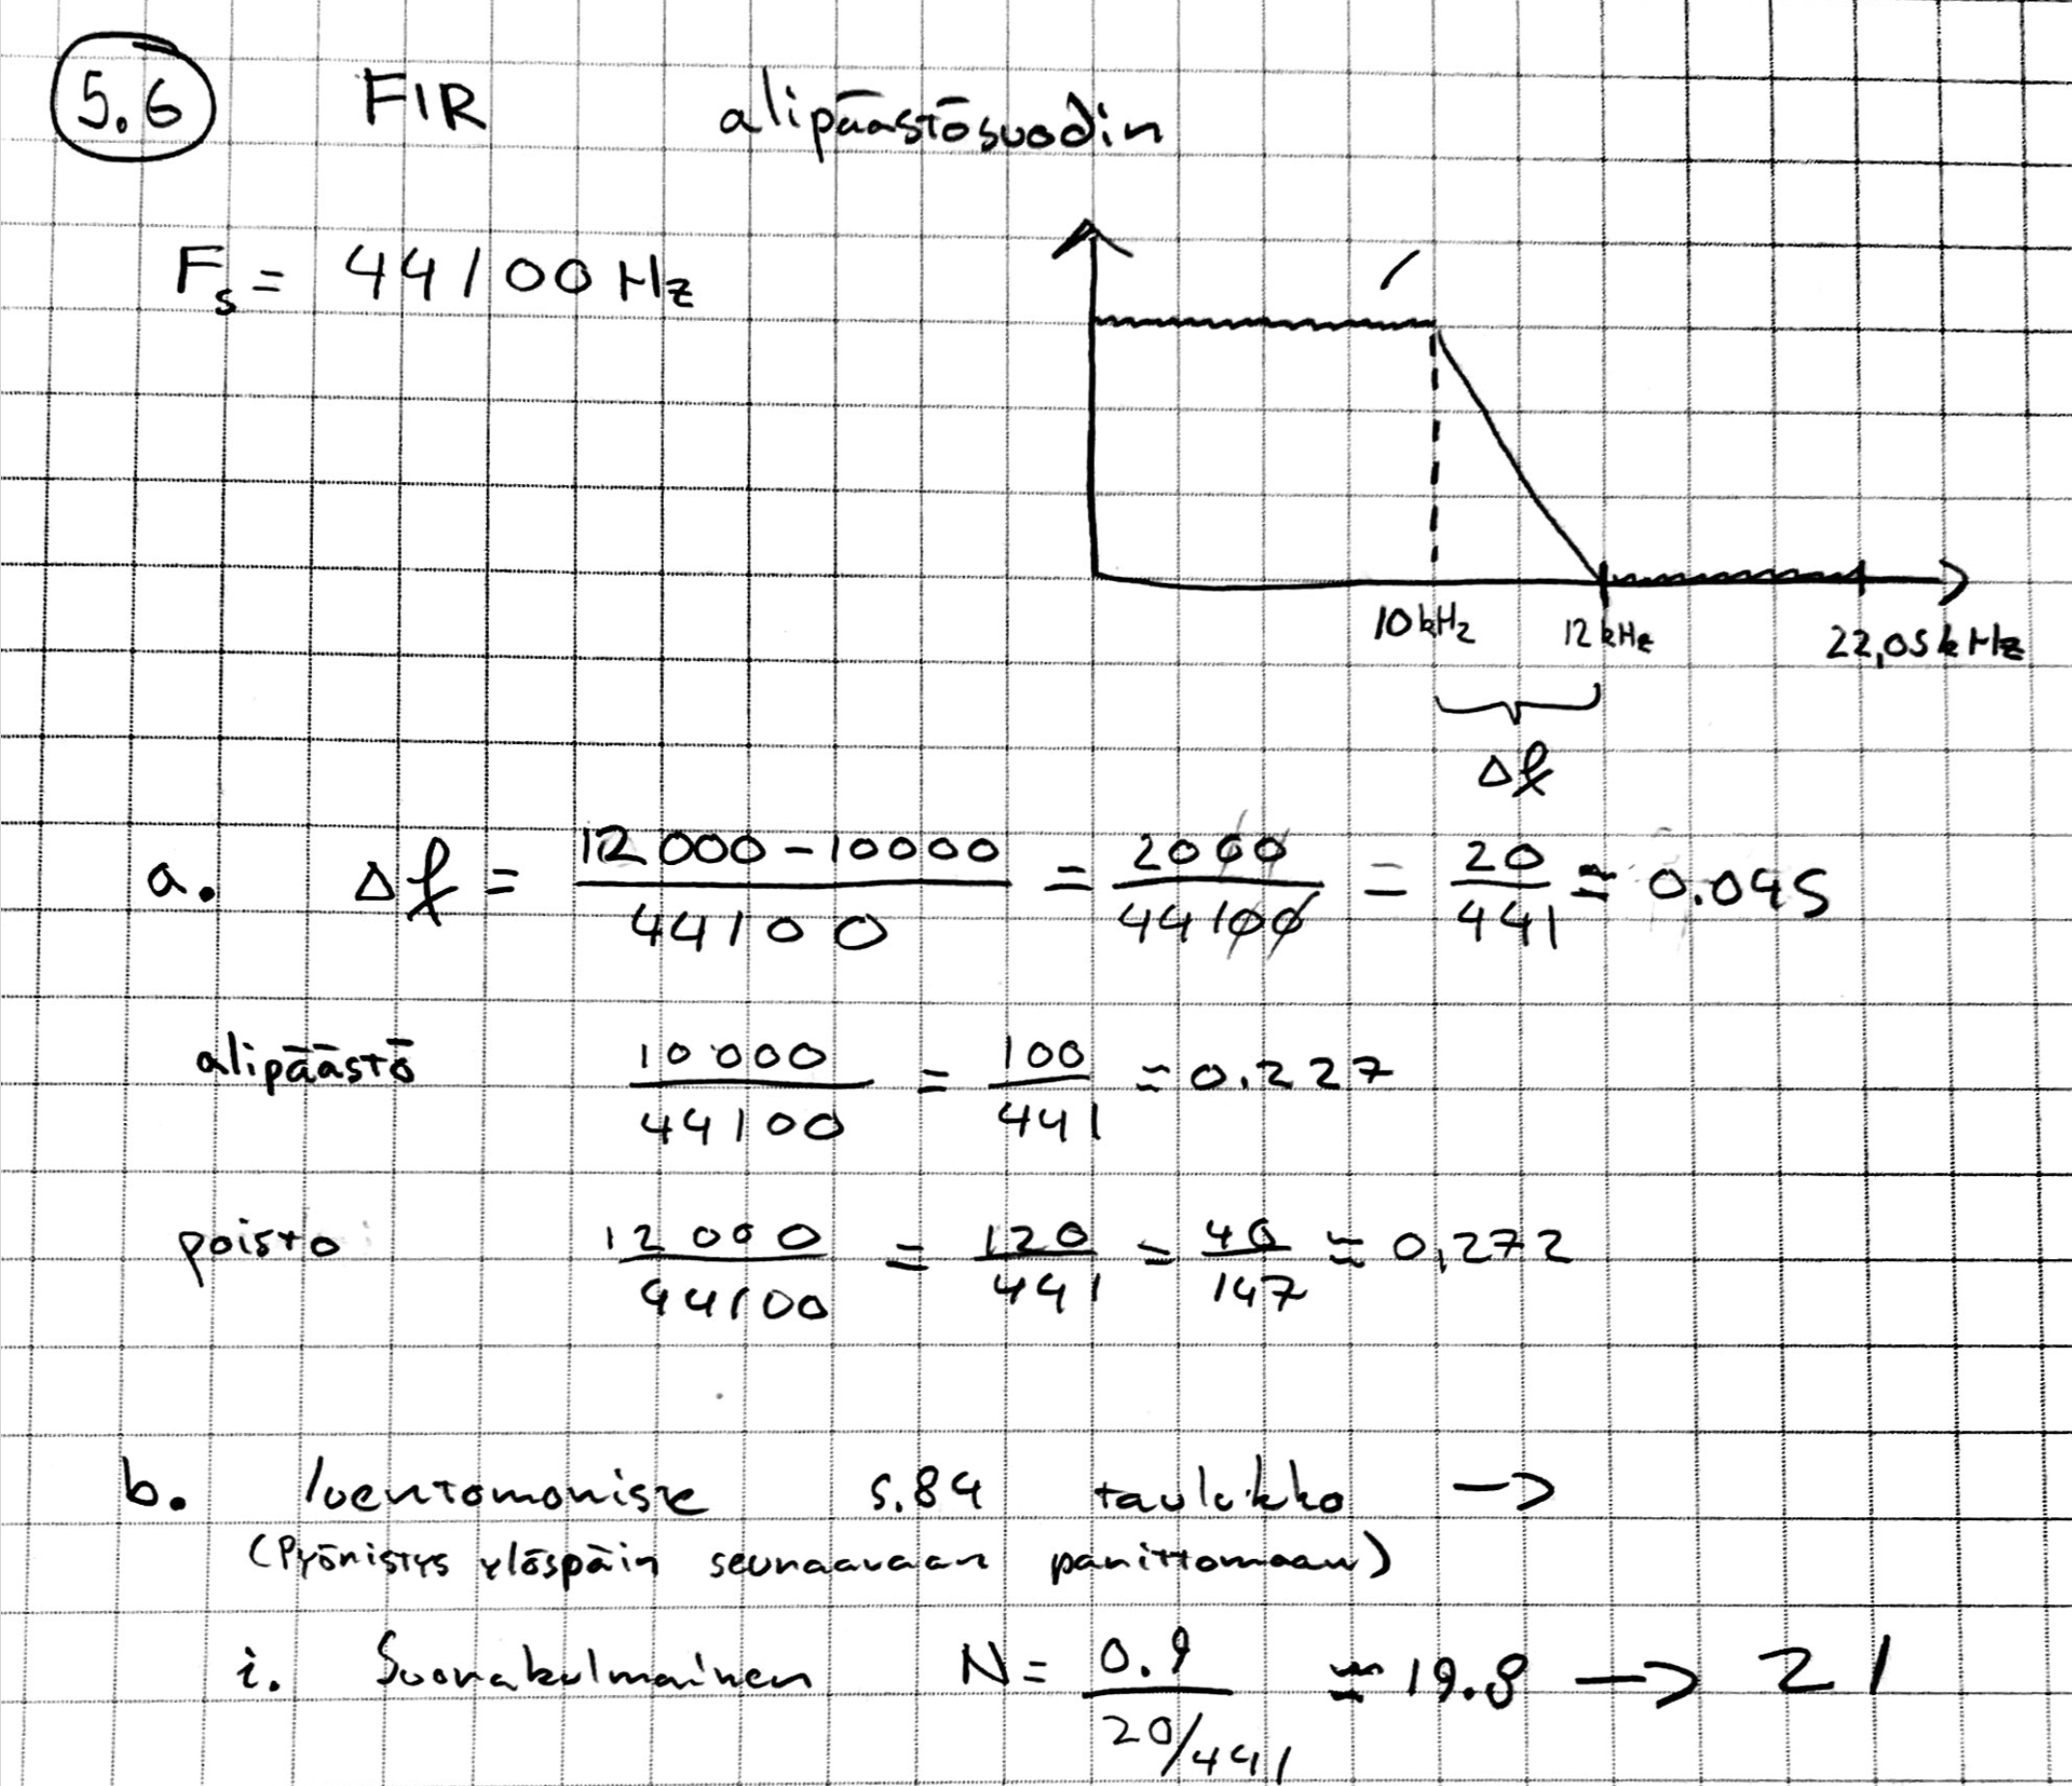 5.6 FIR alipäästösuodin
F_s = 44100 Hz
10 kHz 12 kHz 22,05 kHz
Δf
a. Δf = (12000 - 10000)/44100 = 2000/44100 = 20/441 ≈ 0.045
alipäästö 10000/44100 = 100/441 ≈ 0.227
poisto 12000/44100 = 120/441 = 40/147 ≈ 0,272
b. luentomoniste s.84 taulukko ->
(Pyöristys ylöspäin seuraavaan parittomaan)
i. Suorakulmainen N = 0.9/(20/441) ≈ 19.8 -> 21